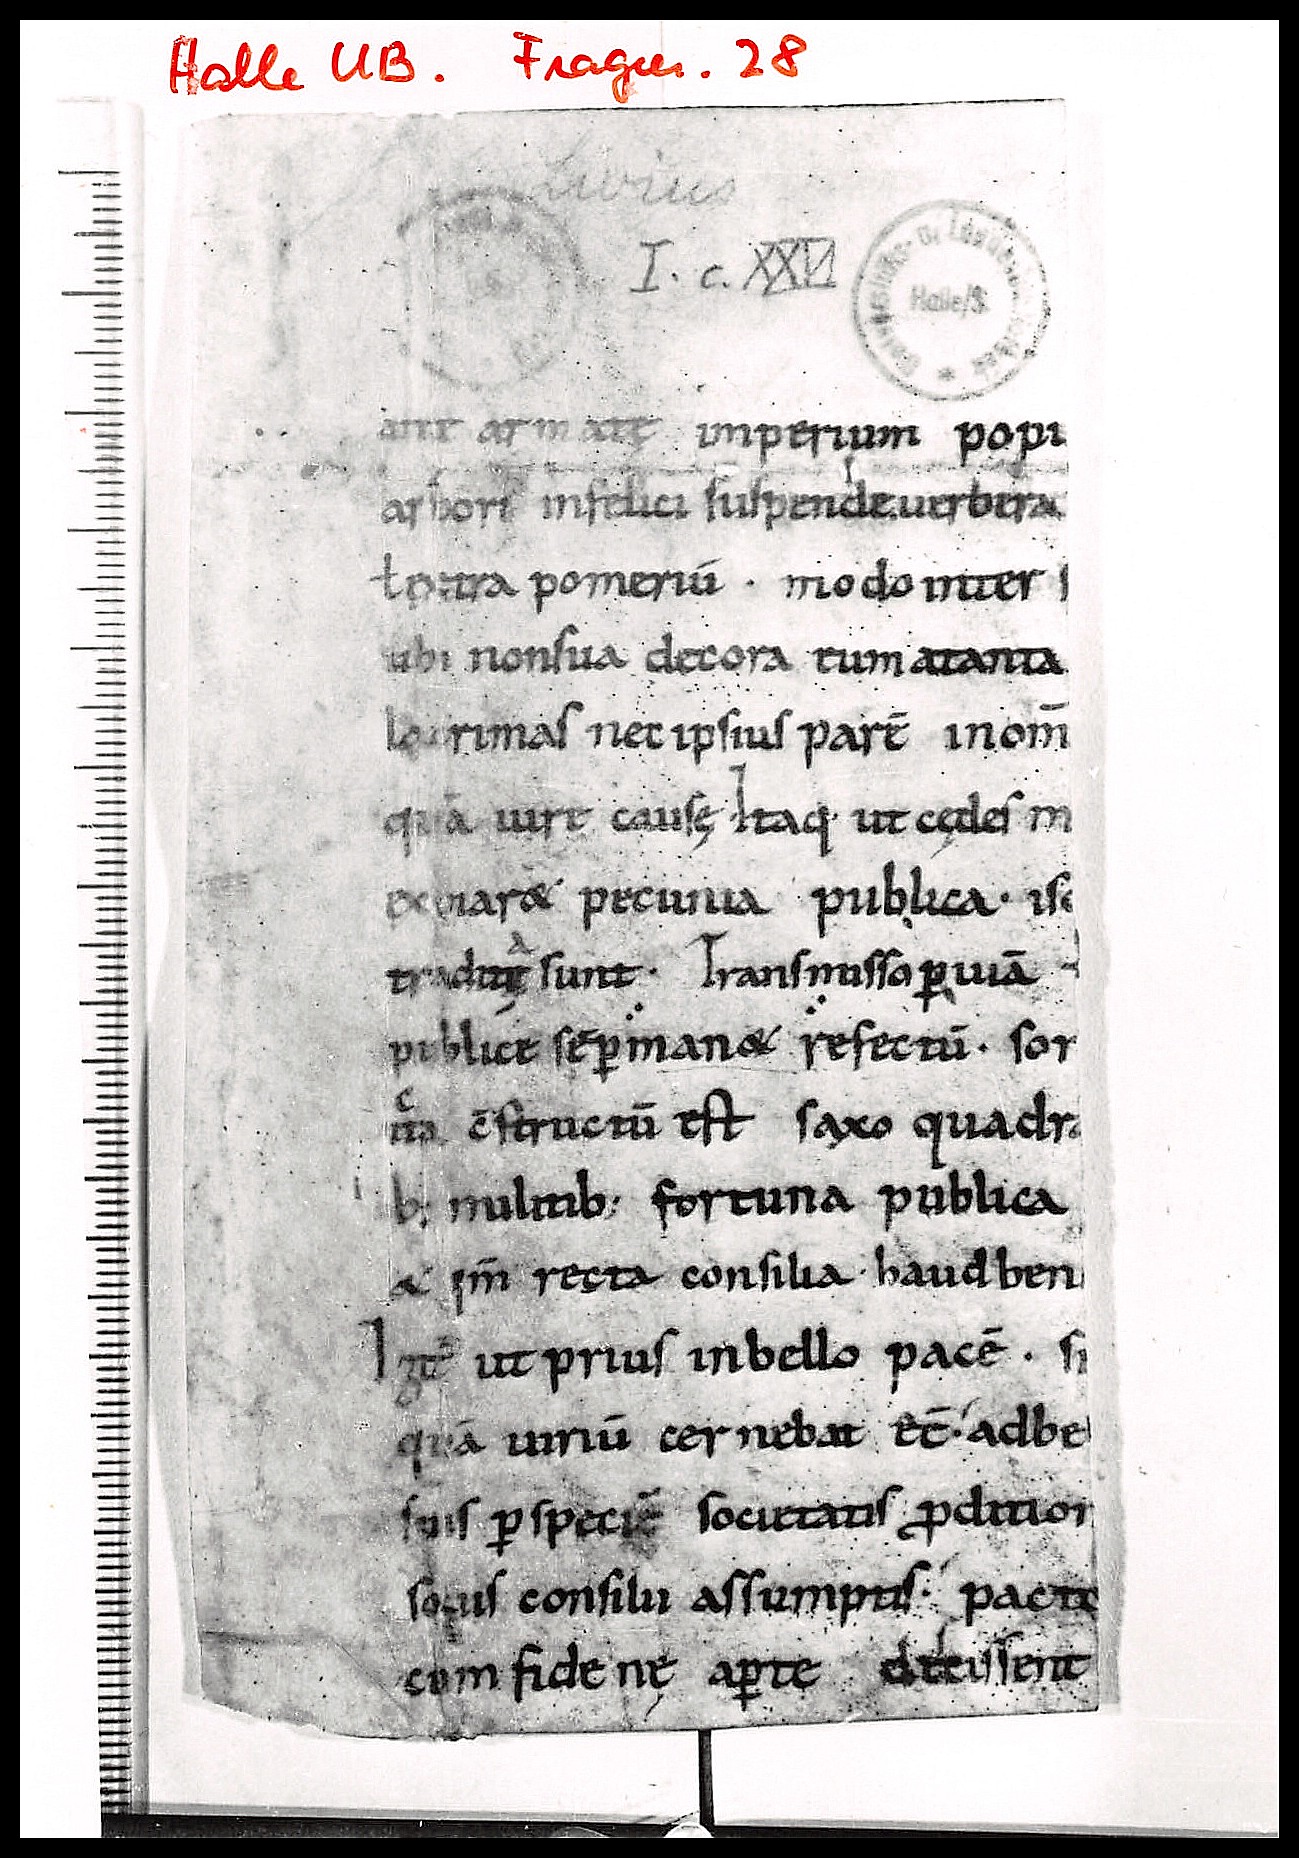 Halle UB. Fragm. 28
Livius
I. c. XXVI
Halle/S.
ante armatę imperium popu
arbori infelici suspende uerbera
l extra pomeriū · modo inter s
ubi non sua decora eum a tanta
lacrimas nec ipsius parē in om̄
quā iure causę. Itaq· ut cędes m
expiar& pecunia publica · is
traditę sunt · Transmisso ꝑ uiā t
publice sēꝑ man& refectū · sor
ita c̄structū est saxo quadra
b; militib; fortuna publica
& sūm recta consilia · haud ben
Igit᷑ ut prius in bello pacē · si
quā uiriū cernebat eē · ad be
suis ꝑ speciē societatis ꝓdition
sociis consilii assumptis · pacto
cum fidenę aꝑte desciissent